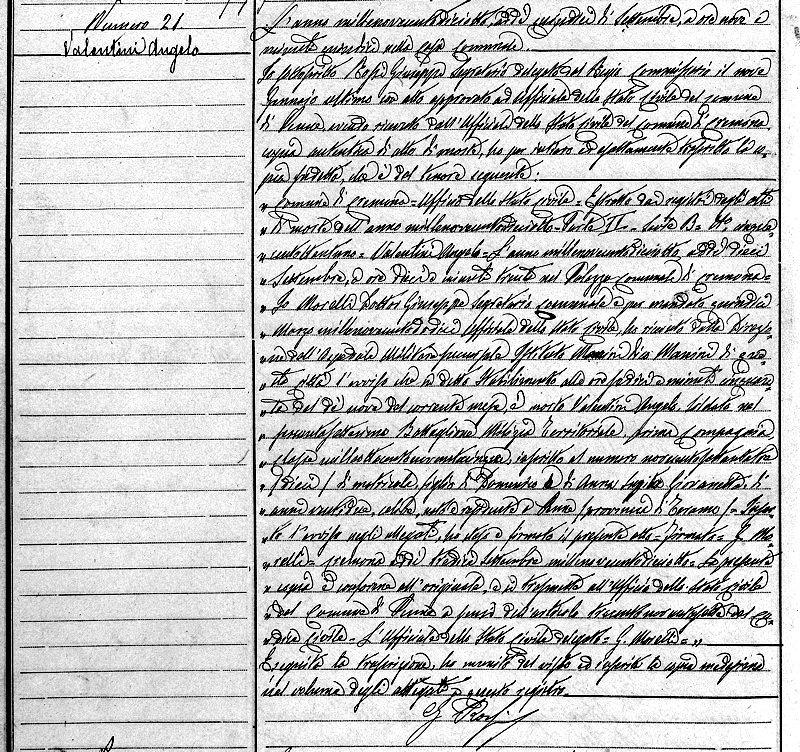 Numero 21
Valentini Angelo
L'anno millenovecentodiciotto, addì quindici di Settembre, a ore nove e
minuti quindici nella Casa Comunale.
Io sottoscritto Rossi Giuseppe Segretario delegato dal Regio Commissario il nove
Gennajo ultimo con atto approvato ad Ufficiale dello Stato Civile del Comune
di Penne, avendo ricevuto dall'Ufficiale dello Stato Civile del Comune di Cremona
copia autentica di atto di morte, ho per intero ed esattamente trascritto la co-
pia predetta, che è del tenore seguente:
" Comune di Cremona = Ufficio dello Stato Civile = Estratto dai registri degli atti
" di morte dell'anno millenovecentodiciotto = Parte II = Serie B = N°
" centottantuno = Valentini Angelo = L'anno millenovecentodiciotto, addì dieci
" Settembre, a ore dieci e minuti trenta nel Palazzo Comunale di Cremona =
" Io Morelli Dottor Giuseppe Segretario Comunale e per mandato quindici
" Marzo millenovecentododici Ufficiale dello Stato Civile, ho ricevuto dalla Direzio-
" ne dell'Ospedale Militare Istituto Manini Via Manini di que-
" sta città l'avviso che in detto Stabilimento alle ore sedici e minuti cinquan-
" ta del dì nove del corrente mese, è morto Valentini Angelo, Soldato nel
" Battaglione Milizia Territoriale, prima Compagnia,
" classe inscritto al numero
" (dieci) di matricola, figlio di Domenico e di Anna Giovannetti, di
" anni ventidue, celibe, nato e residente a Penne (provincia di Teramo) =
" l'avviso negli allegati, ho steso e firmato il presente atto = Firmato = G. Mo-
" relli = Cremona addì tredici Settembre millenovecentodiciotto = La presente
" copia è conforme all'originale, e si trasmette all'Ufficio dello Stato Civile
" del Comune di Penne a sensi dell'articolo trecentonovantasette del Co-
" dice Civile = L'Ufficiale dello Stato Civile delegato = G. Morelli = "
Eseguita la trascrizione, ho munito del visto ed inserito la copia medesima
nel volume degli allegati a questo registro.
G Rossi